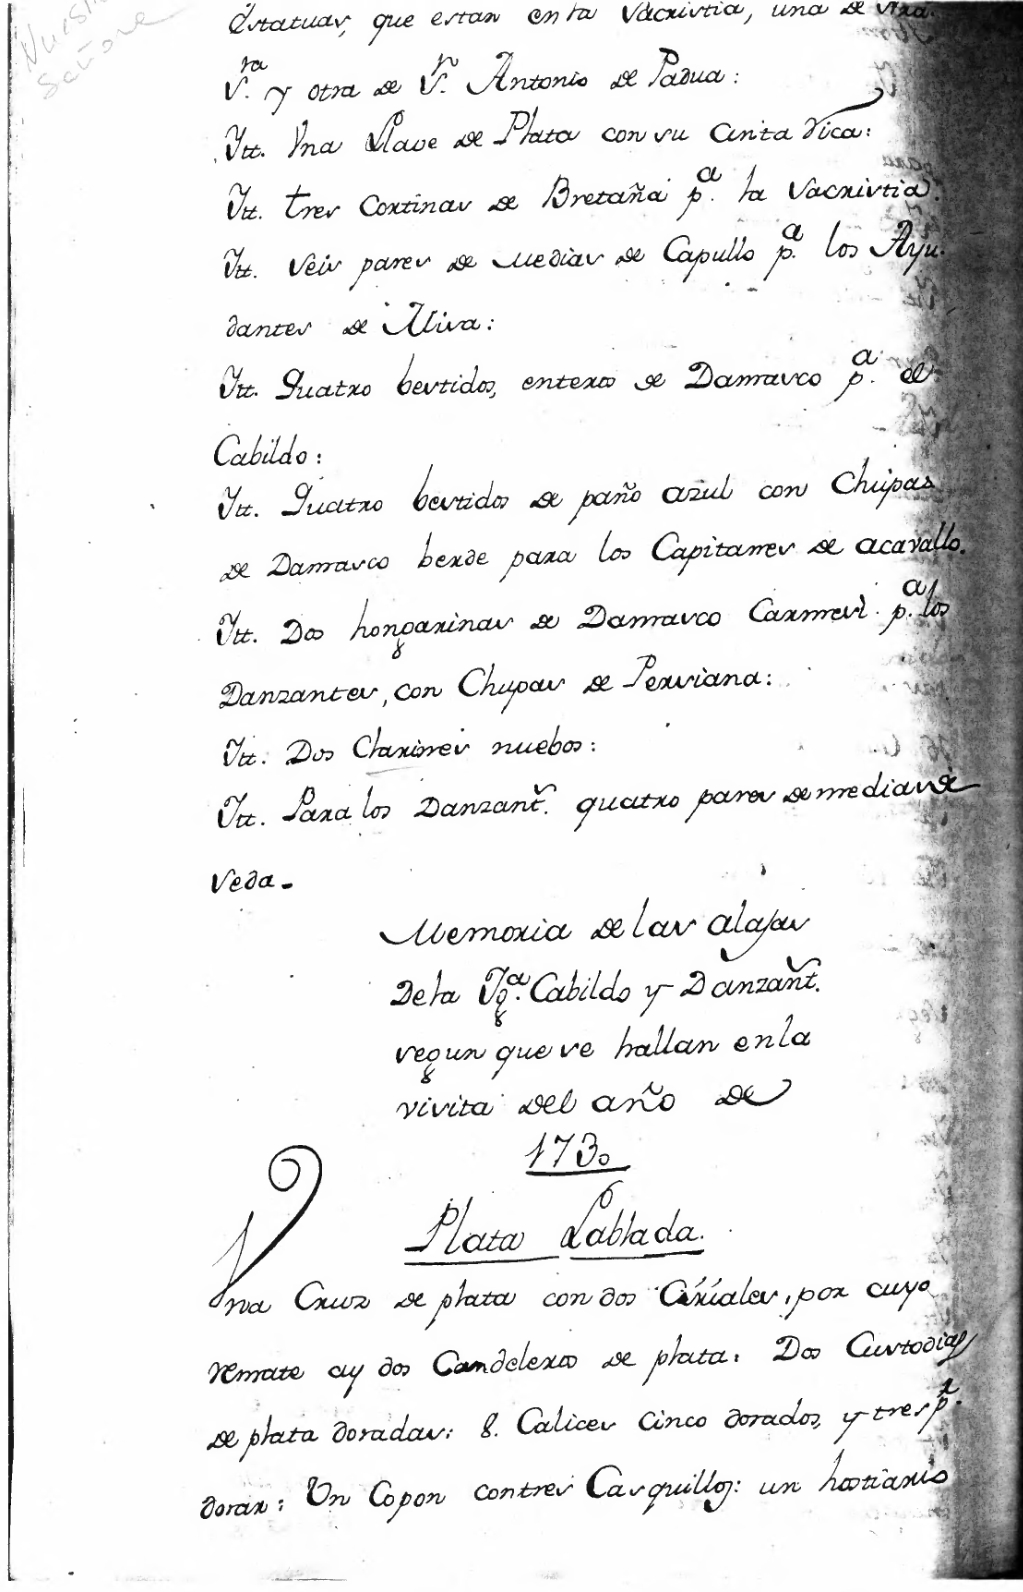 Nuestra
Señora
estatuas, que estan en la sacristia, una de Ntra.
Sra. y otra de Sn. Antonio de Padua:
Itt. Una Llave de Plata con su cinta rica:
Itt. tres Cortinas de Bretaña pa. la sacristia.
Itt. seis pares de medias de Capullo pa. los Ayu-
dantes de Misa:
Itt. Quatro bestidos, enteros de Damasco pa. el
Cabildo:
Itt. Quatro bestidos de paño azul con Chupas
de Damasco berde para los Capitanes de acavallo.
Itt. Dos hongarinas de Damasco Carmesi pa. los
Danzantes, con Chupas de Persiana:
Itt. Dos Clarines nuebos:
Itt. Para los Danzants. quatro pares de medias de
seda.
Memoria de las alajas
De la Yga. Cabildo y Danzants.
segun que se hallan en la
visita del año de
1730
Plata Labrada.
Una Cruz de plata con dos Ciriales, por cuyo
remate ay dos Candeleros de plata: Dos Custodias
de plata doradas: 8. Calices cinco dorados, y tres pr.
dorar: Un Copon con tres Casquillos: un hostiario